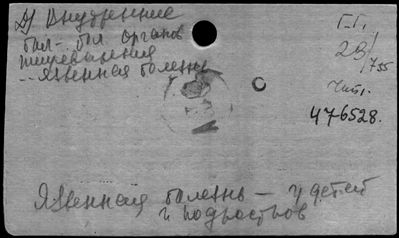 Д) Внутренние
бол- бол. органов
пищеварения
-- язвенная болезнь
Г.Г.
28/735
Чит1.
476528.
Язвенная болезнь — у детей
и подростков